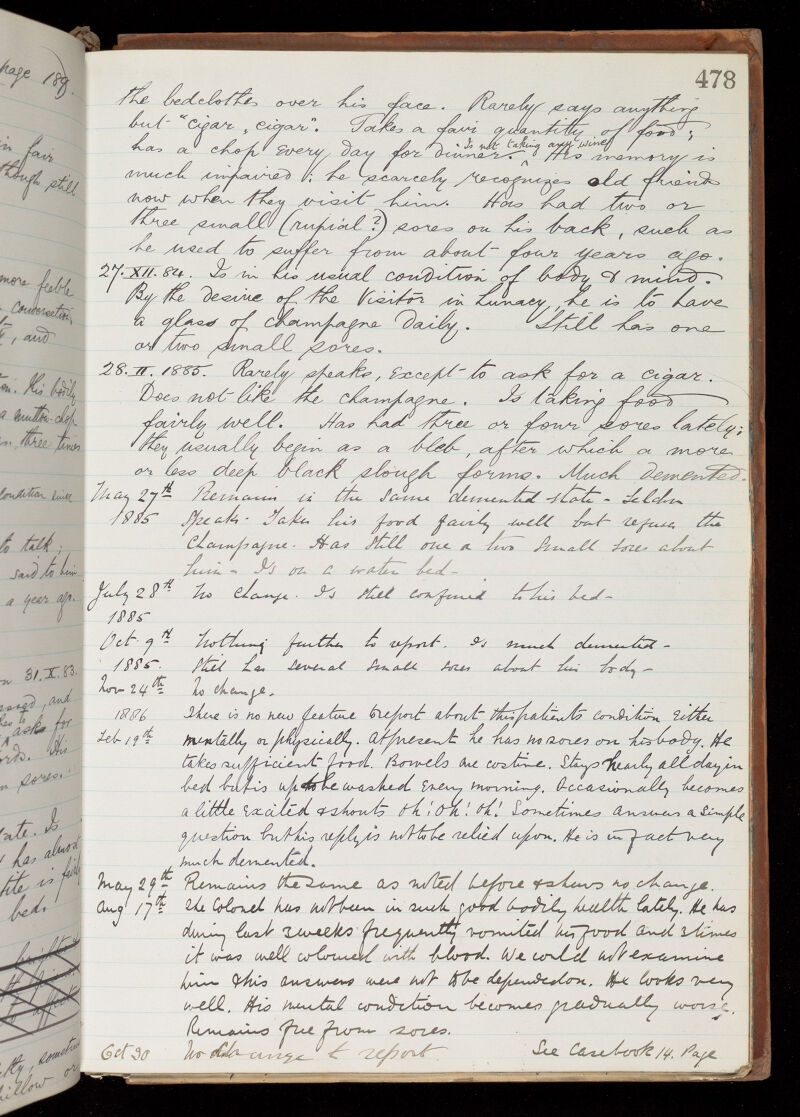 page 189.
in fair
though still
more feeble
conversation
, and
His bodily
a mutton-chop
three times
condition since
to talk;
said to him
a year ago.
on 31.X.83.
and
asks for
His
sores.
state. Is
has almost
is fairly
bed.
sometimes
pillow or
478
the bedclothes over his face. Rarely says anything
but "cigar, cigar". Takes a fair quantity of food;
has a chop every day for dinner. ^ Is not taking any wine His memory is
much impaired: he scarcely recognizes old friends
now when they visit him. Has had two or
three small (rupial?) sores on his back, such as
he used to suffer from about four years ago.
27.XII.84. Is in his usual condition of body & mind.
By the desire of the Visitor in Lunacy, he is to have
a glass of champagne daily. Still has one
or two small sores.
28.II.1885. Rarely speaks, except to ask for a cigar.
Does not like the champagne. Is taking food
fairly well. Has had three or four sores lately;
they usually begin as a bleb, after which a more
or less deep black slough forms. Much demented.
May 27th Remains in the same demented state - Seldom
1885 speaks. Takes his food fairly well but refuses the
Champagne. Has still one or two small sores about
him - Is on a water bed -
July 28th No change. Is still confined to his bed -
1885
Oct 9th Nothing further to report. Is much demented -
1885. Still has several small sores about his body -
Nov 24th No change.
1886 There is no new feature to report about this patients condition either
Feb 19th mentally or physically. At present he has no sores on his body. He
takes sufficient food. Bowels are costive. Stays nearly all day in
bed but is up to be washed every morning. Occasionally becomes
a little excited & shouts Oh! Oh! Oh! Sometimes answers a simple
question but his reply is not to be relied upon. He is in fact very
much demented.
May 29th Remains the same as noted before & shews no change.
Aug 17th The Colonel has not been in such good bodily health lately. He has
during last 2 weeks frequently vomited his food and 3 times
it was well coloured with blood. We could not examine
him & his answers were not to be depended on. He looks very
well. His mental condition becomes gradually worse.
Remains free from sores.
Oct 30 No change to report. See Casebook 14. Page